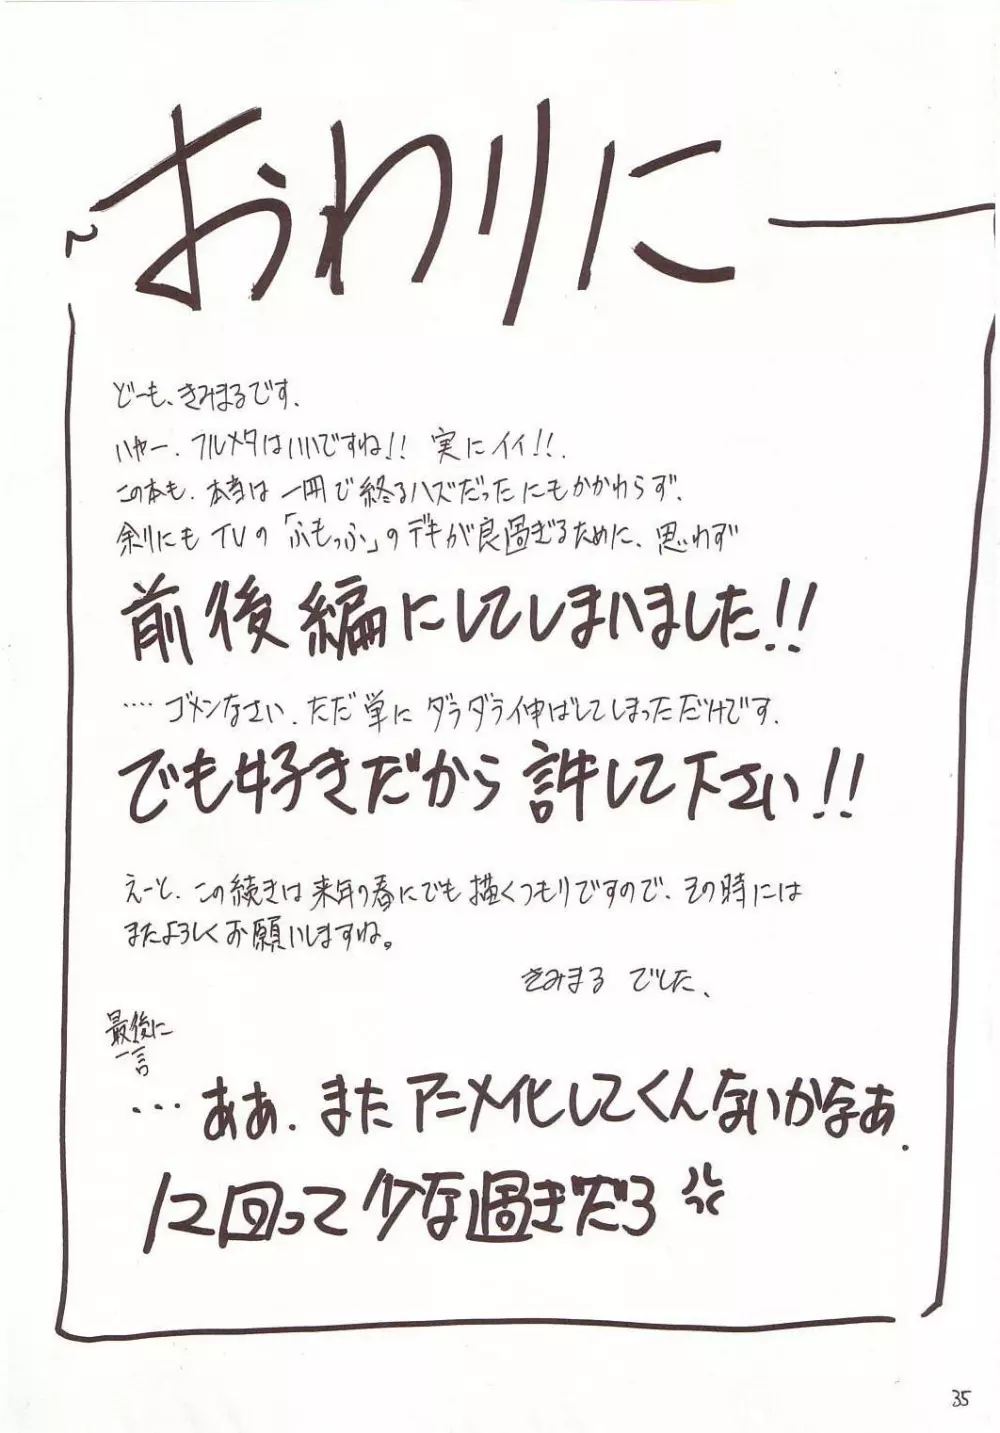 おわりに
どーも、きみまるです.
いやー、フルメタはいいですね!! 実にイイ!!.
この本も、本当は一冊で終るハズだったにもかかわらず、
余りにもTVの「ふもっふ」のデキが良過ぎるために、思わず
前後編にしてしまいました!!
‥‥ゴメンなさい、ただ単にダラダラ伸ばしてしまっただけです.
でも好きだから許して下さい!!
えーと、この続きは来年の春にでも描くつもりですので、その時には
またよろしくお願いしますね。
きみまる でした、
最後に
一言
‥‥ああ、またアニメ化してくんないかなぁ.
12回って少な過ぎだろ
35